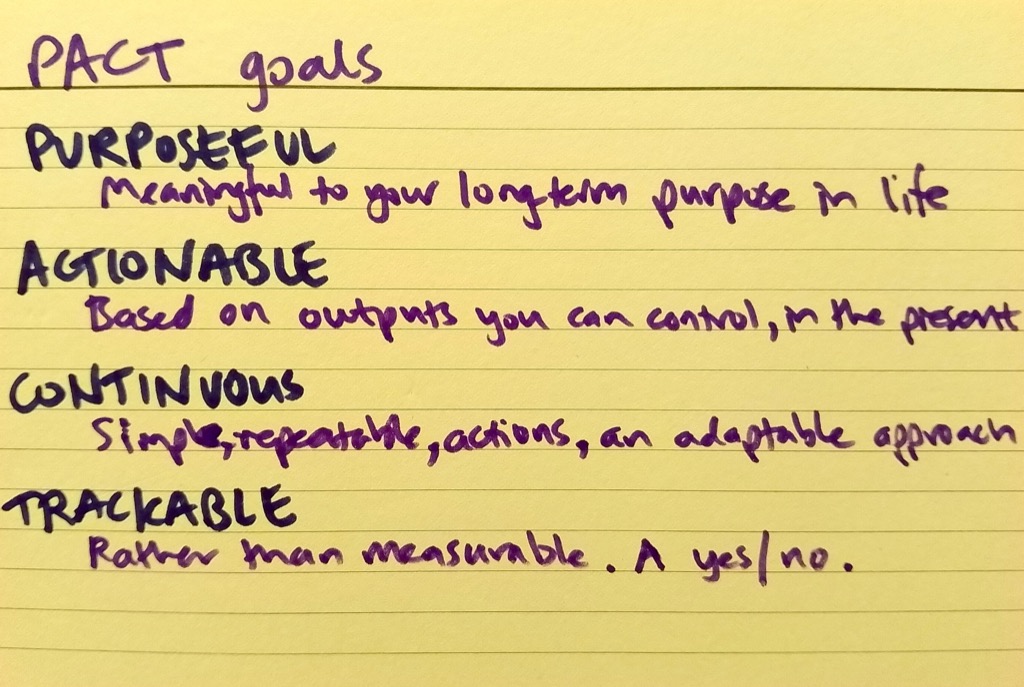 PACT goals
PURPOSEFUL
Meaningful to your long-term purpose in life
ACTIONABLE
Based on outputs you can control, in the present
CONTINUOUS
Simple, repeatable, actions, an adaptable approach
TRACKABLE
Rather than measurable. A yes/no.